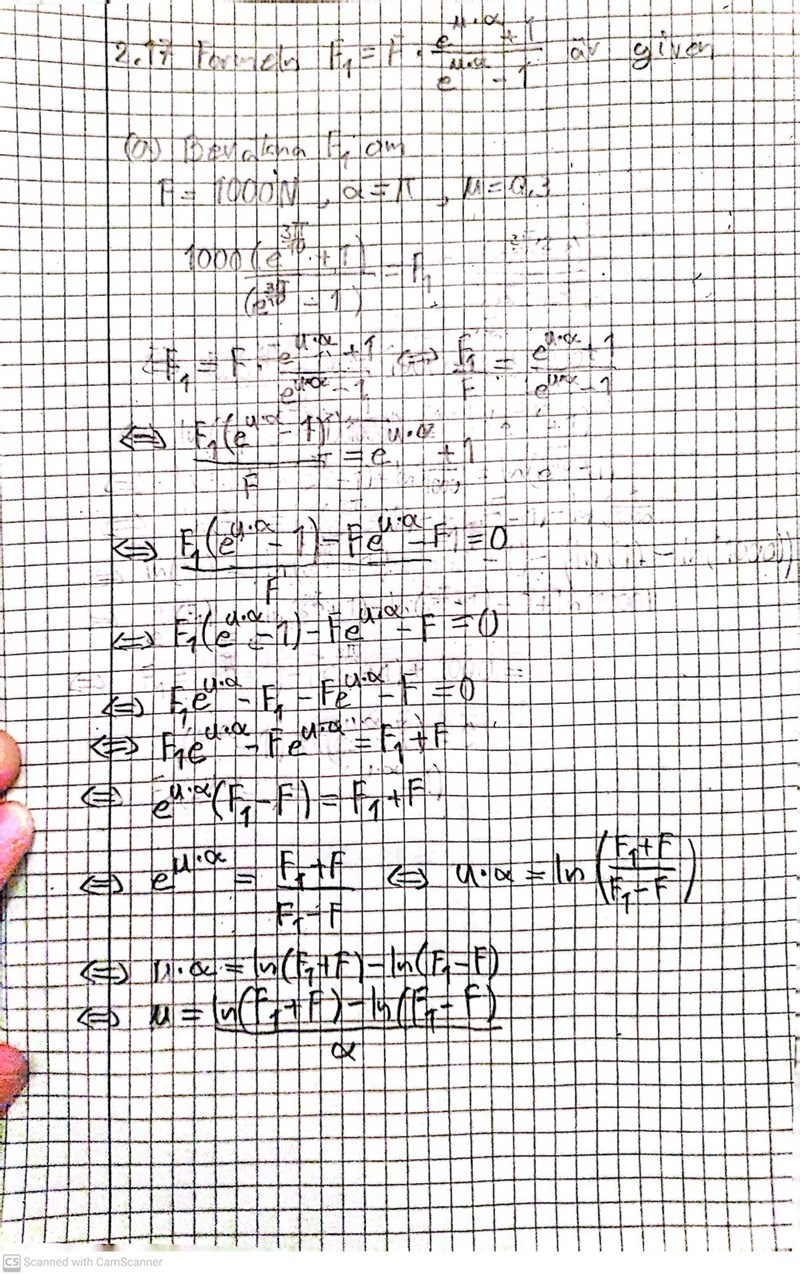 2.17 Formeln F₁ = F · (e^(μ·α) + 1)/(e^(μ·α) - 1) är given
(a) Beräkna F₁ om
F = 1000N, α = π, μ = 0,3
1000(e^(3π/10) + 1)/(e^(3π/10) - 1) = F₁
F₁ = F · (e^(μ·α) + 1)/(e^(μ·α) - 1) ⇔ F₁/F = (e^(μ·α) + 1)/(e^(μ·α) - 1)
⇔ F₁(e^(μ·α) - 1)/F = e^(μ·α) + 1
⇔ (F₁(e^(μ·α) - 1) - Fe^(μ·α) - F)/F = 0
⇔ F₁(e^(μ·α) - 1) - Fe^(μ·α) - F = 0
⇔ F₁e^(μ·α) - F₁ - Fe^(μ·α) - F = 0
⇔ F₁e^(μ·α) - Fe^(μ·α) = F₁ + F
⇔ e^(μ·α)(F₁ - F) = F₁ + F
⇔ e^(μ·α) = (F₁ + F)/(F₁ - F) ⇔ μ·α = ln((F₁ + F)/(F₁ - F))
⇔ μ·α = ln(F₁ + F) - ln(F₁ - F)
⇔ μ = (ln(F₁ + F) - ln(F₁ - F))/α
CS Scanned with CamScanner